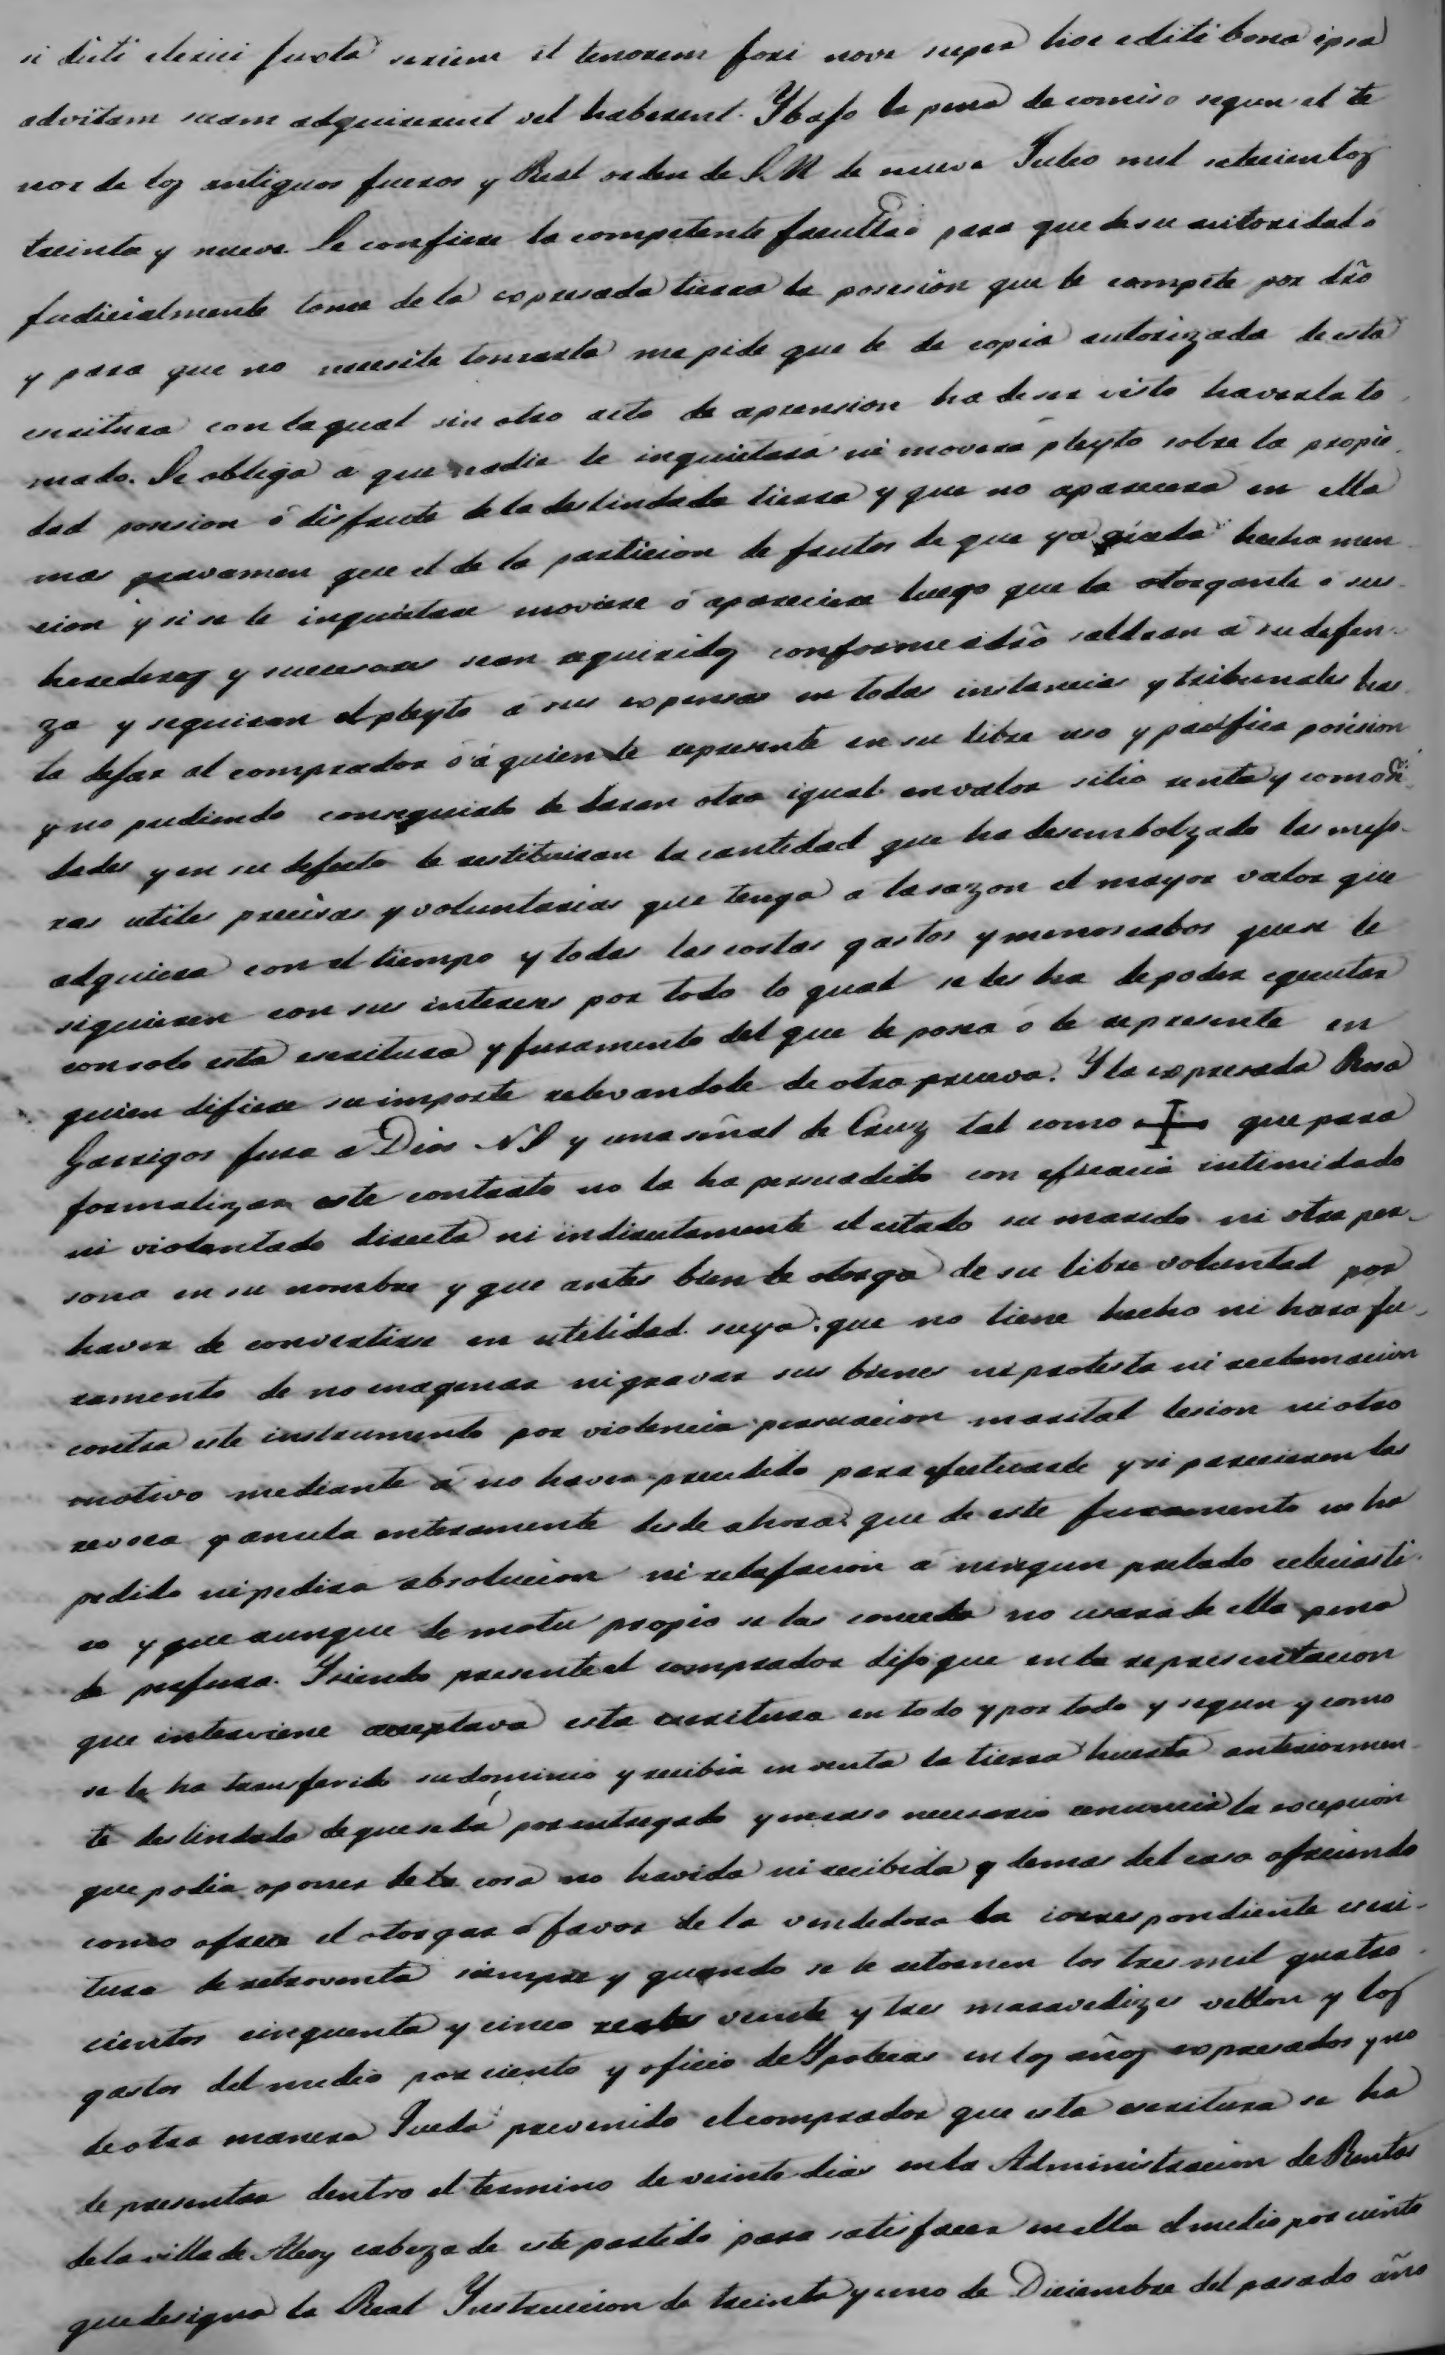 si dicti clerici juxta seriem et tenorem fori novi super hoc editi bona ipsa
advitam suam adquirerent vel haberent. Y bajo la pena de comiso segun el te
nor de los antiguos fueros y Real orden de S.M. de nueve Julio mil setecientos
treinta y nueve. Le confiere la competente facultad para que de su autoridad ó
judicialmente tome de la expresada tierra la posesion que le compete por dro
y para que no necesite tomarla me pide que le de copia autorizada de esta
escritura con la qual sin otro acto de aprension ha de ser visto haverla to
mado. Se obliga a que nadie le inquietará ni movera pleyto sobre la propie
dad posesion ó disfrute de la deslindada tierra y que no aparecera en ella
mas gravamen que el de la particion de frutos de que ya queda hecha men
cion y si se le inquietare moviere ó apareciere luego que la otorgante ó sus
herederos y sucesores sean requiridos conforme a dro saldran á su defen
za y seguiran el pleyto á sus expensas en todas instancias y tribunales has
ta dejar al comprador ó á quien le represente en su libre uso y pacifica posesion
y no pudiendo conseguirlo le daran otra igual en valor sitio renta y comodi
dades y en su defecto le restituiran la cantidad que ha desembolzado las mejo
ras utiles precisas y voluntarias que tenga a la sazon el mayor valor que
adquiera con el tiempo y todas las costas gastos y menoscabos que se le
siguieren con sus intereses por todo lo qual se les ha de poder egecutar
con solo esta escritura y juramento del que le posea ó le represente en
quien difiere su importe relevandole de otra prueva. Y la expresada Rosa
Garrigos jura a Dios N.S. y una señal de Cruz tal como + que para
formalizar este contrato no la ha persuadido con eficacia intimidado
ni violentado directa ni indirectamente el citado su marido ni otra per
sona en su nombre y que antes bien le otorga de su libre voluntad por
haver de convertirse en utilidad suya: que no tiene hecho ni hara ju
ramento de no enagenar ni gravar sus bienes ni protesta ni reclamacion
contra este instrumento por violencia persuacion marital lesion ni otro
motivo mediante á no haver precedido para efectuarle y si parecieren las
revoca y anula enteramente desde ahora: que de este juramento no ha
pedido ni pedira absolucion ni relajacion á ningun prelado eclesiasti
co y que aunque de motu propio se las conceda no usara de ella pena
de perjura. Y siendo presente el comprador dijo que en la representacion
que interviene aceptava esta escritura en todo y por todo y segun y como
se le ha transferido su dominio y recibia en venta la tierra huerta anteriormen
te deslindada de que se dá por entregado y en caso necesario renuncia la excepcion
que podia oponer de la cosa no havida ni recibida y demas del caso ofreciendo
como ofrece el otorgar a favor de la vendedora la correspondiente escri
tura de retroventa siempre y quando se le retornen los tres mil quatro
cientos cinquenta y cinco reales veinte y tres maravedizes vellon y los
gastos del medio por ciento y oficio de Ypotecas en los años expresados y no
de otra manera. Queda prevenido el comprador que esta escritura se ha
de presentar dentro el termino de veinte dias en la Administracion de Rentas
de la villa de Alcoy cabeza de este partido para satisfacer en ella el medio por ciento
que designa la Real Ynstruccion de treinta y uno de Diciembre del pasado año